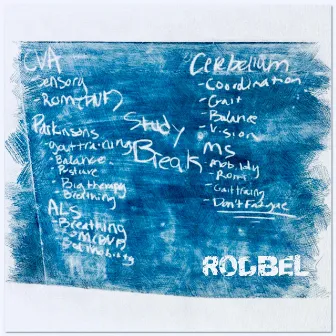 CVA
Sensory
- Rom
Parkinsons
- gait training
- Balance
- Posture
- Big therapy
- Breathing
ALS
- Breathing
Study
Break
Cerebellum
- Coordination
- Gait
- Balance
- Vision
MS
- Mobility
- Rom
- Gait training
- Don't Fatigue
RODBEL